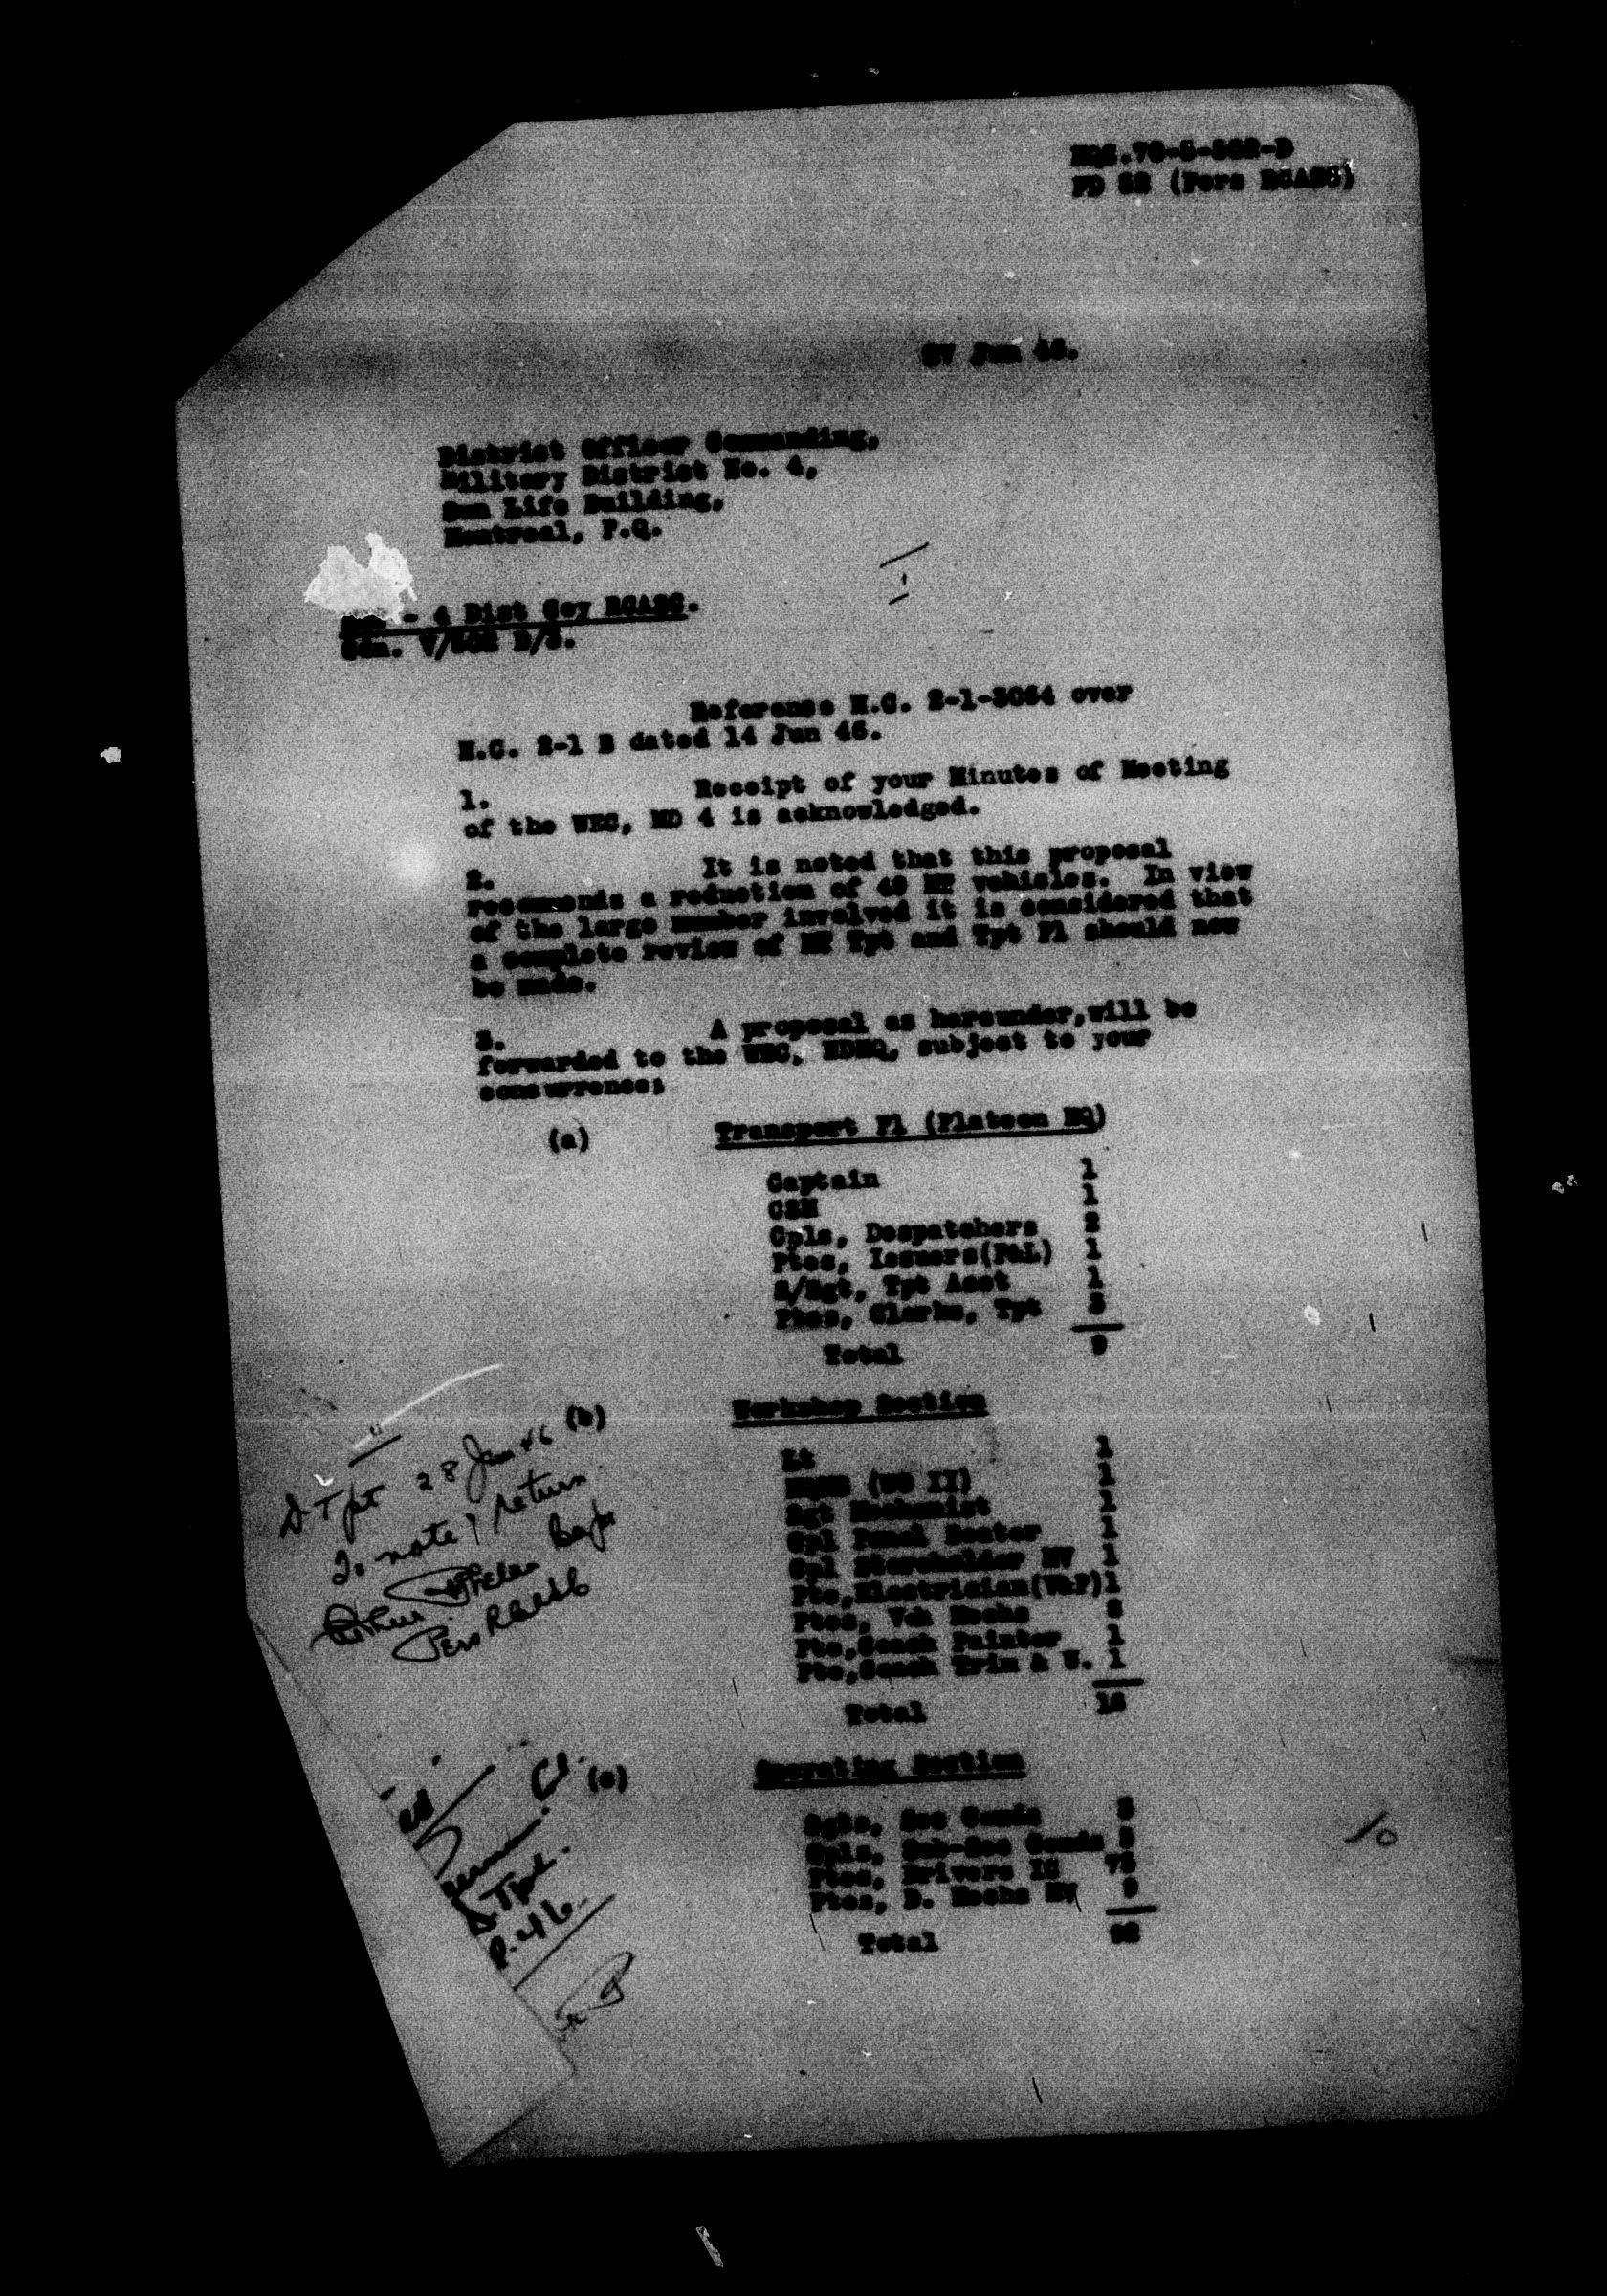 HQS.70-5-502-D
PD 22 (Pers RCASC)
27 Jun 46.
District Officer Commanding,
Military District No. 4,
Sun Life Building,
Montreal, P.Q.
- 4 Dist Coy RCASC.
Cdn. V/502 D/3.
Reference M.C. 2-1-3064 over
M.C. 2-1 B dated 14 Jun 46.
1. Receipt of your Minutes of Meeting
of the WEC, MD 4 is acknowledged.
2. It is noted that this proposal
recommends a reduction of 49 MT vehicles. In view
of the large number involved it is considered that
a complete review of MT Tpt and Tpt Pl should now
be made.
3. A proposal as hereunder,will be
forwarded to the WEC, NDHQ, subject to your
concurrence;
(a) Transport Pl (Platoon HQ)
Captain 1
CSM 1
Cpls, Despatchers 2
Ptes, Issuers(P&L) 1
S/Sgt, Tpt Acct 1
Ptes, Clerks, Tpt 3
Total 9
(b) Workshop Section
Lt 1
(WO II) 1
Sgt Mechanist 1
Cpl Panel Beater 1
Cpl Storeholder MV 1
Pte,Electrician(V&P)1
Ptes, Veh Mechs 8
Pte,Coach Painter 1
Pte,Coach Trim & U. 1
Total 16
D-Tpt 28 Jun 46
To note & return
Pers RCASC
(c) Operating Section
Sgts, Sec Comds
Cpls, Sub-Sec Comds 5
Ptes, Drivers IC 75
Ptes, D. Mechs MV 9
Total 92
D Tpt.
10